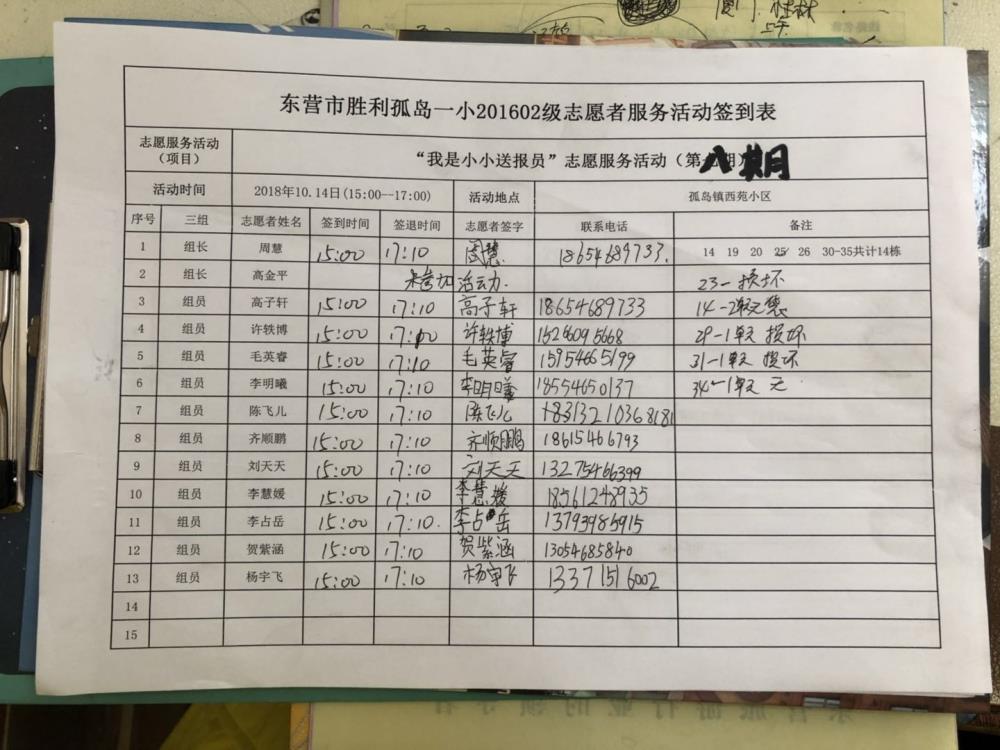 厦门、桂林
东营市胜利孤岛一小201602级志愿者服务活动签到表
志愿服务活动（项目） “我是小小送报员”志愿服务活动（第八期）
活动时间 2018年10.14日(15:00--17:00) 活动地点 孤岛镇西苑小区
序号 三组 志愿者姓名 签到时间 签退时间 志愿者签字 联系电话 备注
1 组长 周慧 15:00 17:10 周慧 18654689733. 14 19 20 25 26 30-35共计14栋
2 组长 高金平 未参加活动. 23-损坏
3 组员 高子轩 15:00 17:10 高子轩 18654689733 14-2单元
4 组员 许轶博 15:00 17:10 许轶博 29-1单元 损坏
5 组员 毛英睿 15:00 17:10 毛英睿 15954665199 31-1单元 损坏
6 组员 李明曦 15:00 17:10 李明曦 18554650137 34-1单元 无
7 组员 陈飞儿 15:00 17:10 陈飞儿
8 组员 齐顺鹏 15:00 17:10 齐顺鹏 18615466793
9 组员 刘天天 15:00 17:10 刘天天 13275466399
10 组员 李慧媛 15:00 17:10 李慧媛 18561248935
11 组员 李占岳 15:00 17:10. 李占岳 13793985915
12 组员 贺紫涵 15:00 17:10 贺紫涵 13054685840
13 组员 杨宇飞 15:00 17:10 杨宇飞 13371516002
14
15